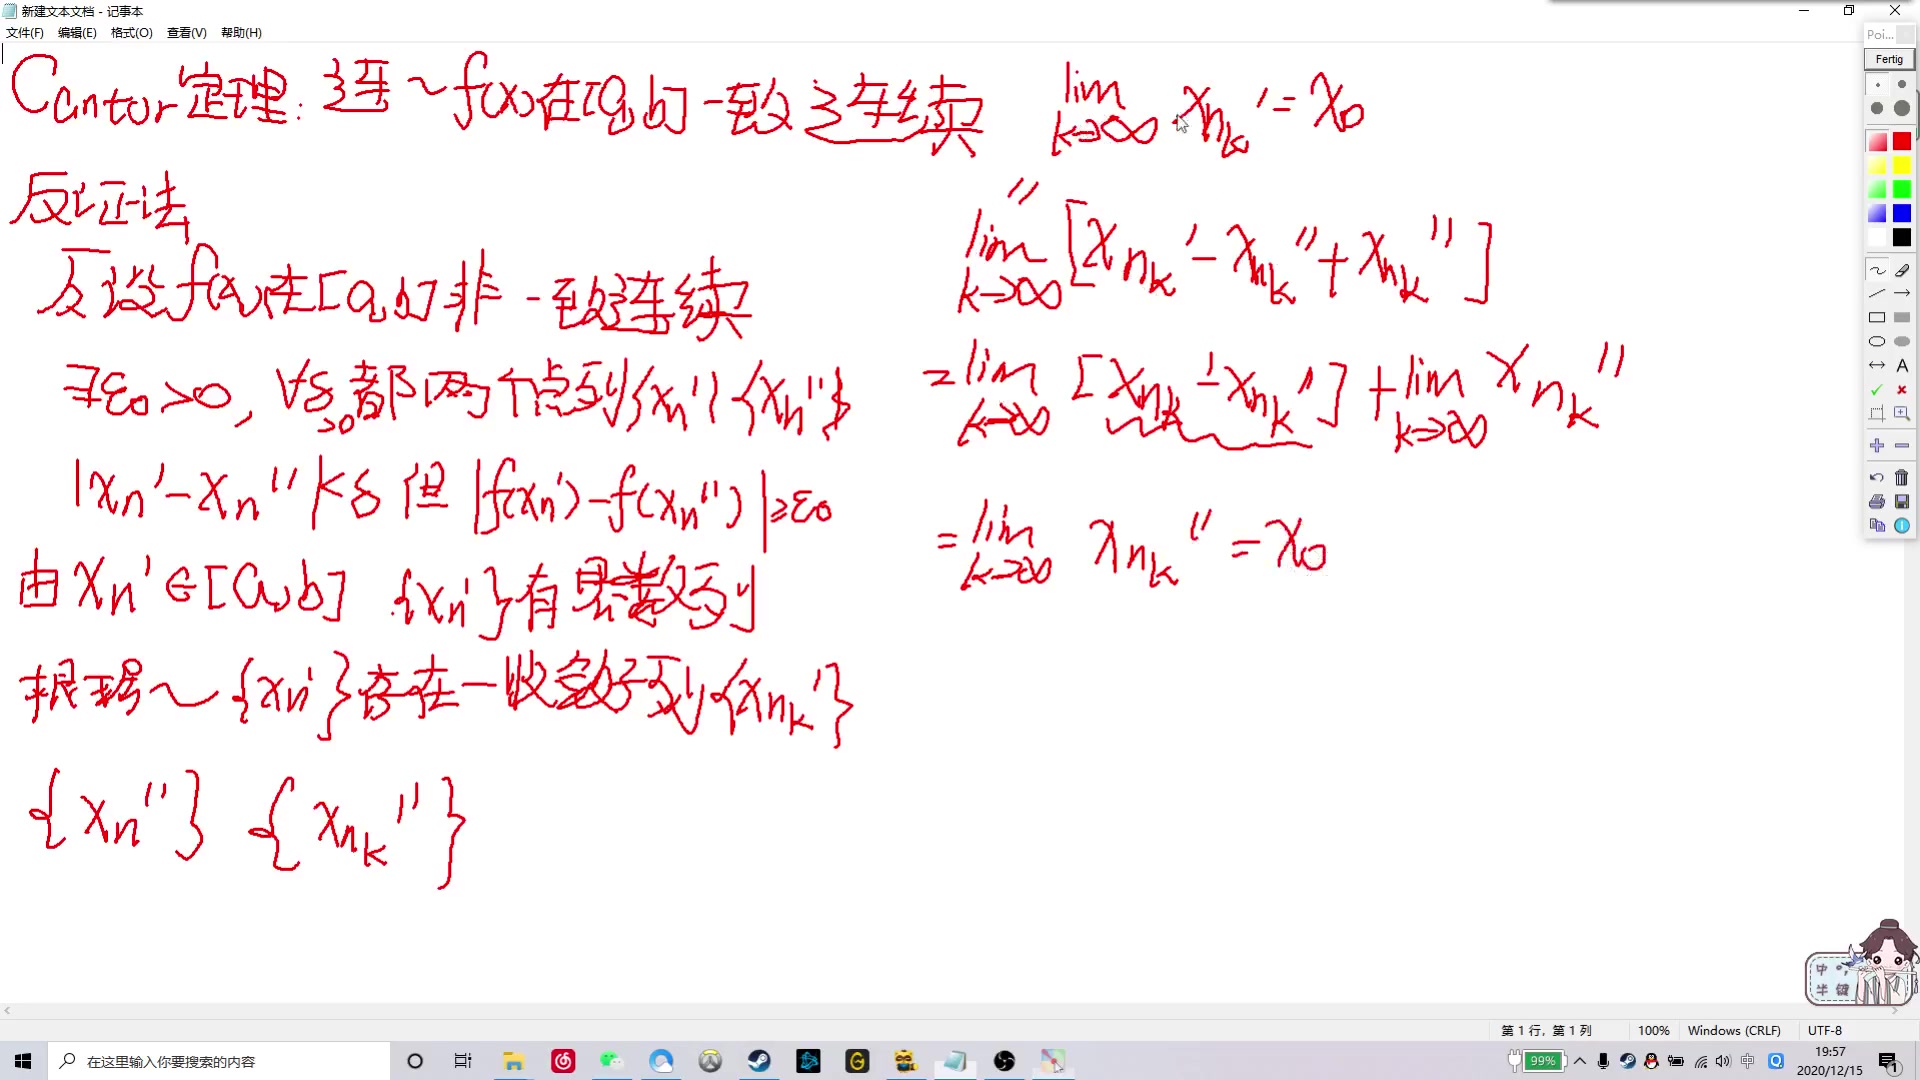 新建文本文档 - 记事本
文件(F) 编辑(E) 格式(O) 查看(V) 帮助(H)
Cantor定理: 连~f(x)在[a,b]一致连续
反证法
反设f(x)在[a,b]非一致连续
∃ε₀>0, ∀δ>0 都两个点列{xn'} {xn''}
|xn'-xn''|<δ 但 |f(xn')-f(xn'')|≥ε₀
由xn'∈[a,b] {xn'}有界数列
根据~{xn'}存在一收敛子列{xnk'}
{xn''} {xnk''}
lim k→∞ xnk' = x0
''
lim k→∞ [xnk' - xnk'' + xnk'']
= lim k→∞ [xnk' - xnk''] + lim k→∞ xnk''
= lim k→∞ xnk'' = x0
Poi...
Fertig
A
中
半 键
第 1 行，第 1 列 100% Windows (CRLF) UTF-8
在这里输入你要搜索的内容
99%
中
19:57
2020/12/15
1